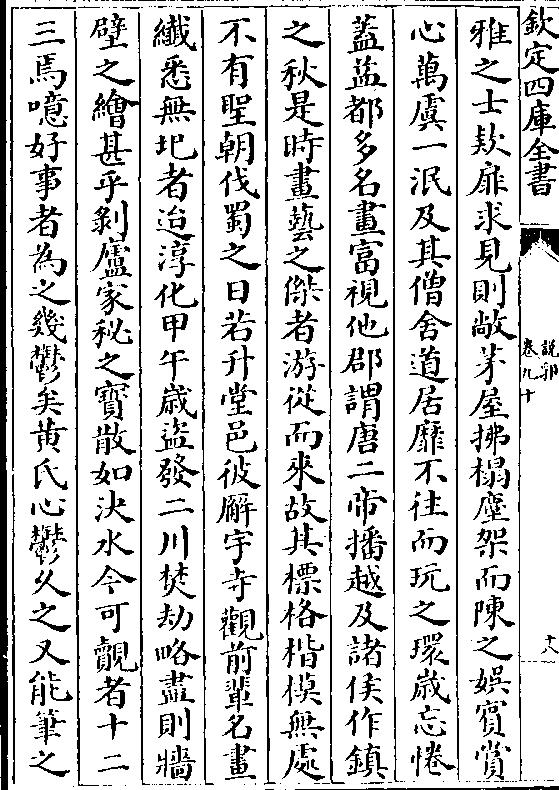 欽定四庫全書
説郛
卷九十
十八
雅之士欵扉求見則敞茅屋拂榻塵架而陳之娛賓賞
心萬虞一泯及其僧舍道居靡不往而玩之環歲忘惓
蓋益都多名畫富視他郡謂唐二帝播越及諸侯作鎮
之秋是時畫藝之傑者游從而來故其標格楷模無處
不有聖朝伐蜀之日若升堂邑彼廨宇寺觀前輩名畫
纎悉無圯者迨淳化甲午歲盜發二川焚劫略盡則牆
壁之繪甚乎剝廬家秘之寳散如決水今可觀者十二
三焉噫好事者為之幾鬱矣黃氏心鬱久之又能筆之